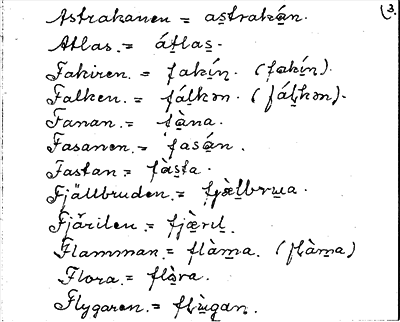 (3.
Astrakanen = as̱traká̱n.
Atlas. = áṯlas̱.
Fakiren. = fakíṉ. (fa̱kíṉ).
Falken. = fáḻkən. (fáḻkən).
Fanan. = fà̱na.
Fasanen. = fasá̱n.
Fastan = fàs̱ta.
Fjällbruden. = fjæ̀ḻbru̱a.
Fjärilen. = fjæ̱̀rıl.
Flamman. = flàm̱a. (flàm̱a)
Flora. = flò̱ra.
Flygaren. = flù̱gan.